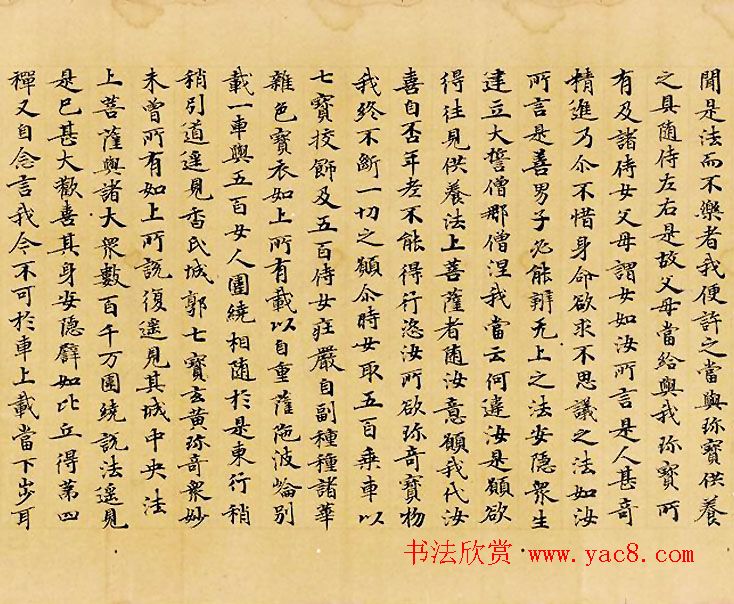 聞是法而不樂者我便許之當與珎寶供養
之具随侍左右是故父母當給與我珎寶所
有及諸侍女父母謂女如汝所言是人甚奇
精進乃尒不惜身命欲求不思議之法如汝
所言是善男子必能辦无上之法安隱衆生
建立大誓僧那僧涅我當云何違汝是願欲
得往見供養法上菩薩者随汝意願我代汝
喜自吾年老不能得行恣汝所欲珎奇寶物
我終不斷一切之願尒時女取五百乗車以
七寶挍飾及五百侍女莊嚴自副種種諸華
雜色寶衣如上所有載以自重薩陁波崘別
載一車與五百女人圍繞相随於是東行稍
稍引道遥見香氏城郭七寶玄黄珎奇衆妙
未曽所有如上所說復遥見其城中央法
上菩薩與諸大衆數百千万圍繞說法遥見
是已甚大歡喜其身安隱譬如比丘得第四
禪又自念言我今不可於車上載當下步耳
书法欣赏 www.yac8.com